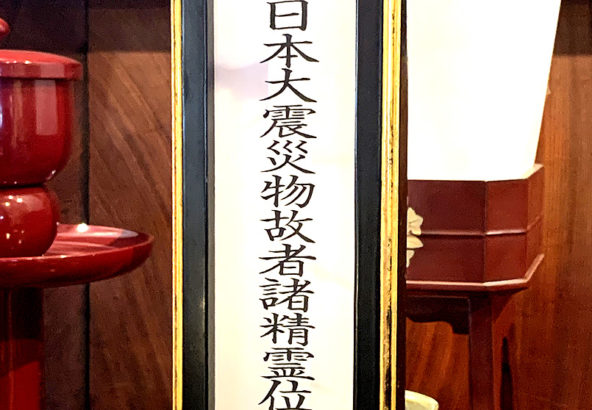 日本大震災物故者諸精霊位